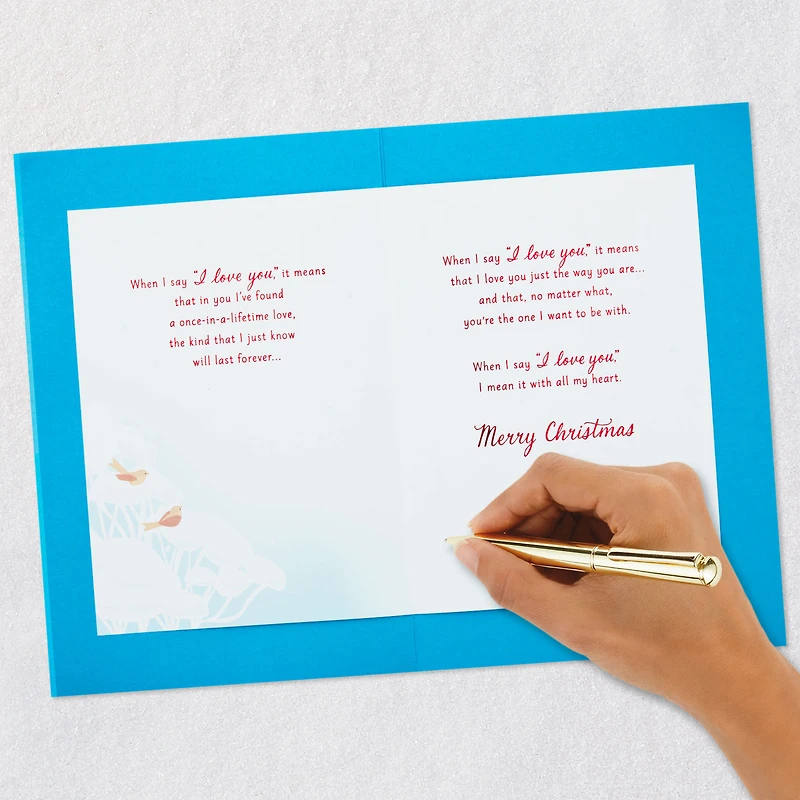 When I say “I love you,” it means
that in you I’ve found
a once-in-a-lifetime love,
the kind that I just know
will last forever...
When I say “I love you,” it means
that I love you just the way you are...
and that, no matter what,
you’re the one I want to be with.
When I say “I love you,”
I mean it with all my heart.
Merry Christmas